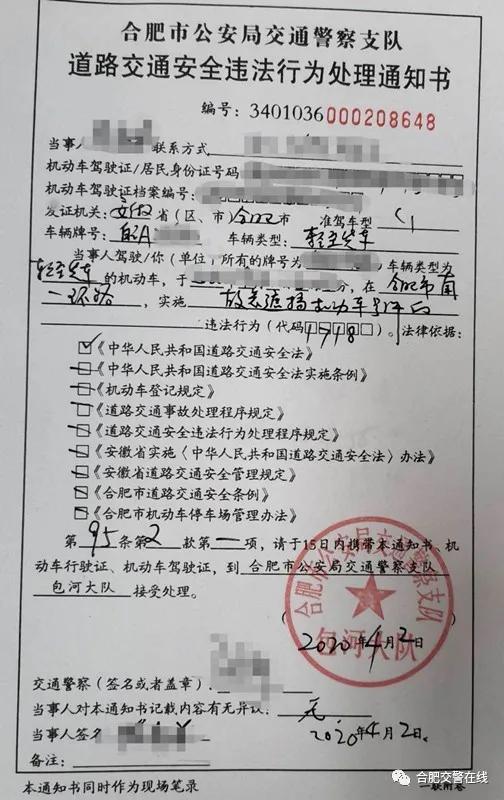 合肥市公安局交通警察支队
道路交通安全违法行为处理通知书
编号：3401036000208648
当事人 联系方式
机动车驾驶证/居民身份证号码
机动车驾驶证档案编号：
发证机关：安徽省（区、市）合肥市 准驾车型 C1
车辆牌号：皖A 车辆类型：轻型货车
当事人驾驶/你（单位）所有的牌号为 车辆类型为
轻型货车的机动车，于 分，在合肥市南
二环路，实施 故意遮挡机动车号牌的
违法行为（代码1718）。法律依据：
☑《中华人民共和国道路交通安全法》
□《中华人民共和国道路交通安全法实施条例》
□《机动车登记规定》
□《道路交通事故处理程序规定》
□《道路交通安全违法行为处理程序规定》
□《安徽省实施〈中华人民共和国道路交通安全法〉办法》
□《安徽省道路交通安全管理规定》
□《合肥市道路交通安全条例》
□《合肥市机动车停车场管理办法》
第95条第2款第一项，请于15日内携带本通知书、机
动车行驶证、机动车驾驶证，到合肥市公安局交通警察支队
包河大队 接受处理。
合肥市公安局交通警察支队
包河大队
2020年4月2日
交通警察（签名或者盖章）
当事人对本通知书记载内容有无异议：无
当事人签名 2020年4月2日
备注：
本通知书同时作为现场笔录 一联附卷
合肥交警在线